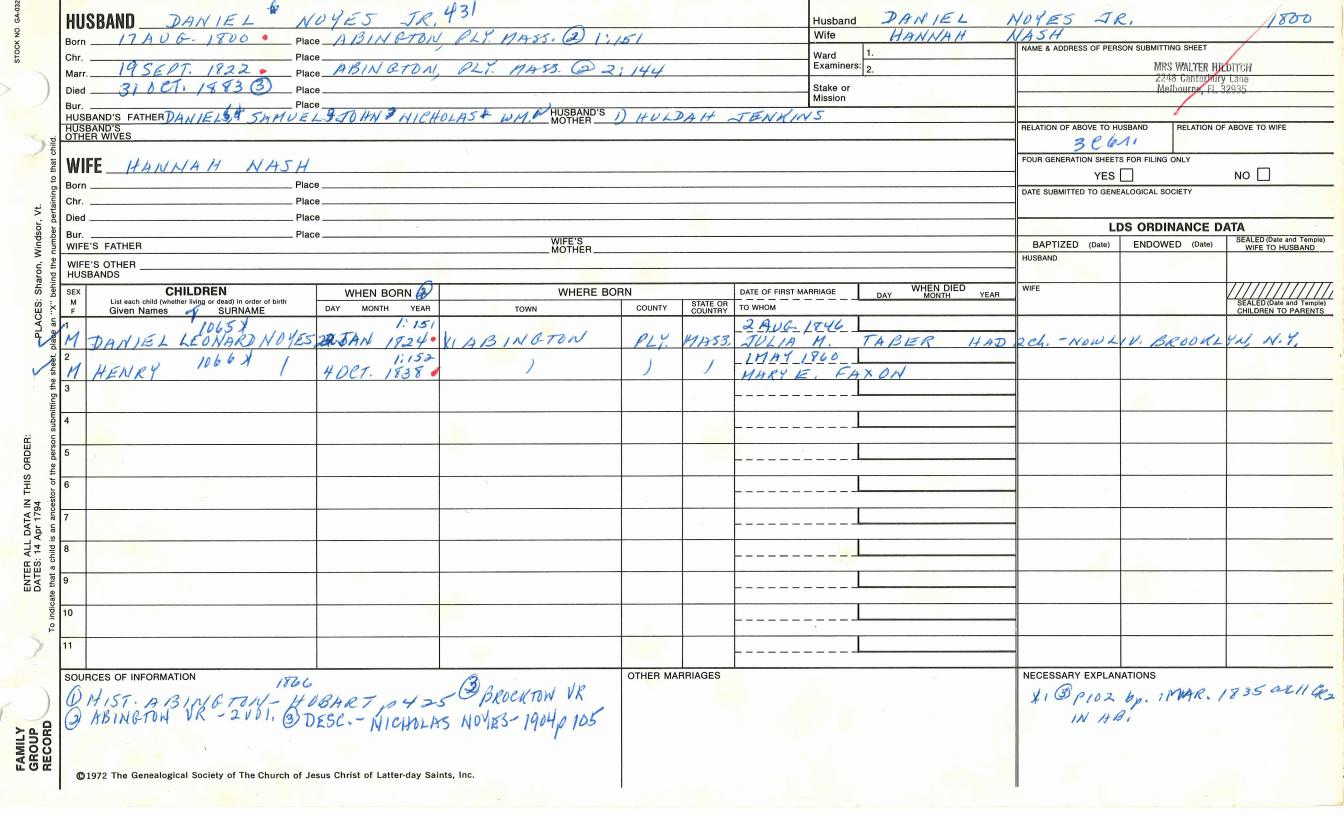 STOCK NO. GA-032
HUSBAND DANIEL 6 NOYES JR. 431
Born 17 AUG. 1800 Place ABINGTON, PLY MASS. ② 1:151
Chr. Place
Marr. 19 SEPT. 1822 Place ABINGTON, PLY. MASS. ② 2:144
Died 31 OCT. 1883 ③ Place
Bur. Place
HUSBAND'S FATHER DANIEL SAMUEL JOHN NICHOLAS WM. HUSBAND'S MOTHER 1) HULDAH JENKINS
HUSBAND'S OTHER WIVES
WIFE HANNAH NASH
Born Place
Chr. Place
Died Place
Bur. Place
WIFE'S FATHER WIFE'S MOTHER
WIFE'S OTHER HUSBANDS
Husband DANIEL NOYES JR. 1800
Wife HANNAH NASH
Ward Examiners: 1.
2.
Stake or Mission
NAME & ADDRESS OF PERSON SUBMITTING SHEET
MRS WALTER HILDITCH
2248 Canterbury Lane
Melbourne, FL 32935
RELATION OF ABOVE TO HUSBAND RELATION OF ABOVE TO WIFE
FOUR GENERATION SHEETS FOR FILING ONLY
YES NO
DATE SUBMITTED TO GENEALOGICAL SOCIETY
LDS ORDINANCE DATA
BAPTIZED (Date) ENDOWED (Date) SEALED (Date and Temple) WIFE TO HUSBAND
HUSBAND
WIFE
SEALED (Date and Temple) CHILDREN TO PARENTS
SEX M F CHILDREN WHEN BORN ② WHERE BORN DATE OF FIRST MARRIAGE WHEN DIED
List each child (whether living or dead) in order of birth
Given Names SURNAME DAY MONTH YEAR TOWN COUNTY STATE OR COUNTRY TO WHOM DAY MONTH YEAR
1065 X 1:151 2 AUG 1846
M DANIEL LEONARD NOYES JAN 1824 ABINGTON PLY MASS. JULIA M. TABER HAD 2 ch. - NOW LIV. BROOKLYN, N.Y.
2 1066 X 1:152 1 MAY 1860
M HENRY 4 OCT. 1838 MARY E. FAXON
3
4
5
6
7
8
9
10
11
SOURCES OF INFORMATION
1866
① HIST. ABINGTON - HOBART p 425 ③ BROCKTON VR
② ABINGTON VR - 2 Vol. ③ DESC. - NICHOLAS NOYES - 1904 p 105
OTHER MARRIAGES
NECESSARY EXPLANATIONS
p102 bp. 1 MAR. 1835
IN AB.
©1972 The Genealogical Society of The Church of Jesus Christ of Latter-day Saints, Inc.
FAMILY GROUP RECORD
ENTER ALL DATA IN THIS ORDER:
DATES: 14 Apr 1794
PLACES: Sharon, Windsor, Vt.
To indicate that a child is an ancestor of the person submitting the sheet, place an "X" behind the number pertaining to that child.